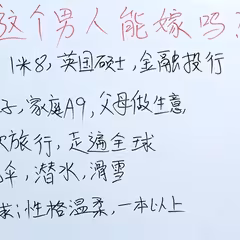 这个男人能嫁吗?
1米8,英国硕士,金融投行
子,家庭A9,父母做生意
旅行,走遍全球
伞,潜水,滑雪
求:性格温柔,一本以上